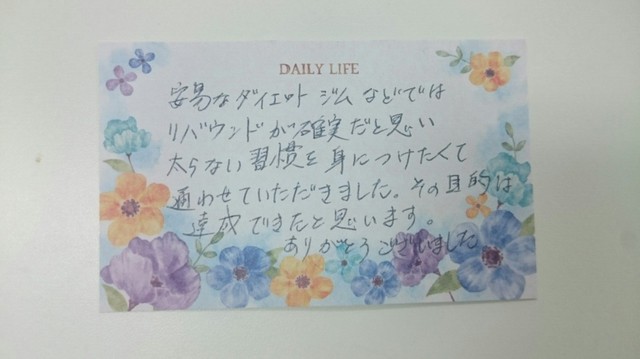 DAILY LIFE
安易なダイエットジムなどでは
リバウンドが確実だと思い
太らない習慣を身につけたくて
通わせていただきました。その目的は
達成できたと思います。
ありがとうございました